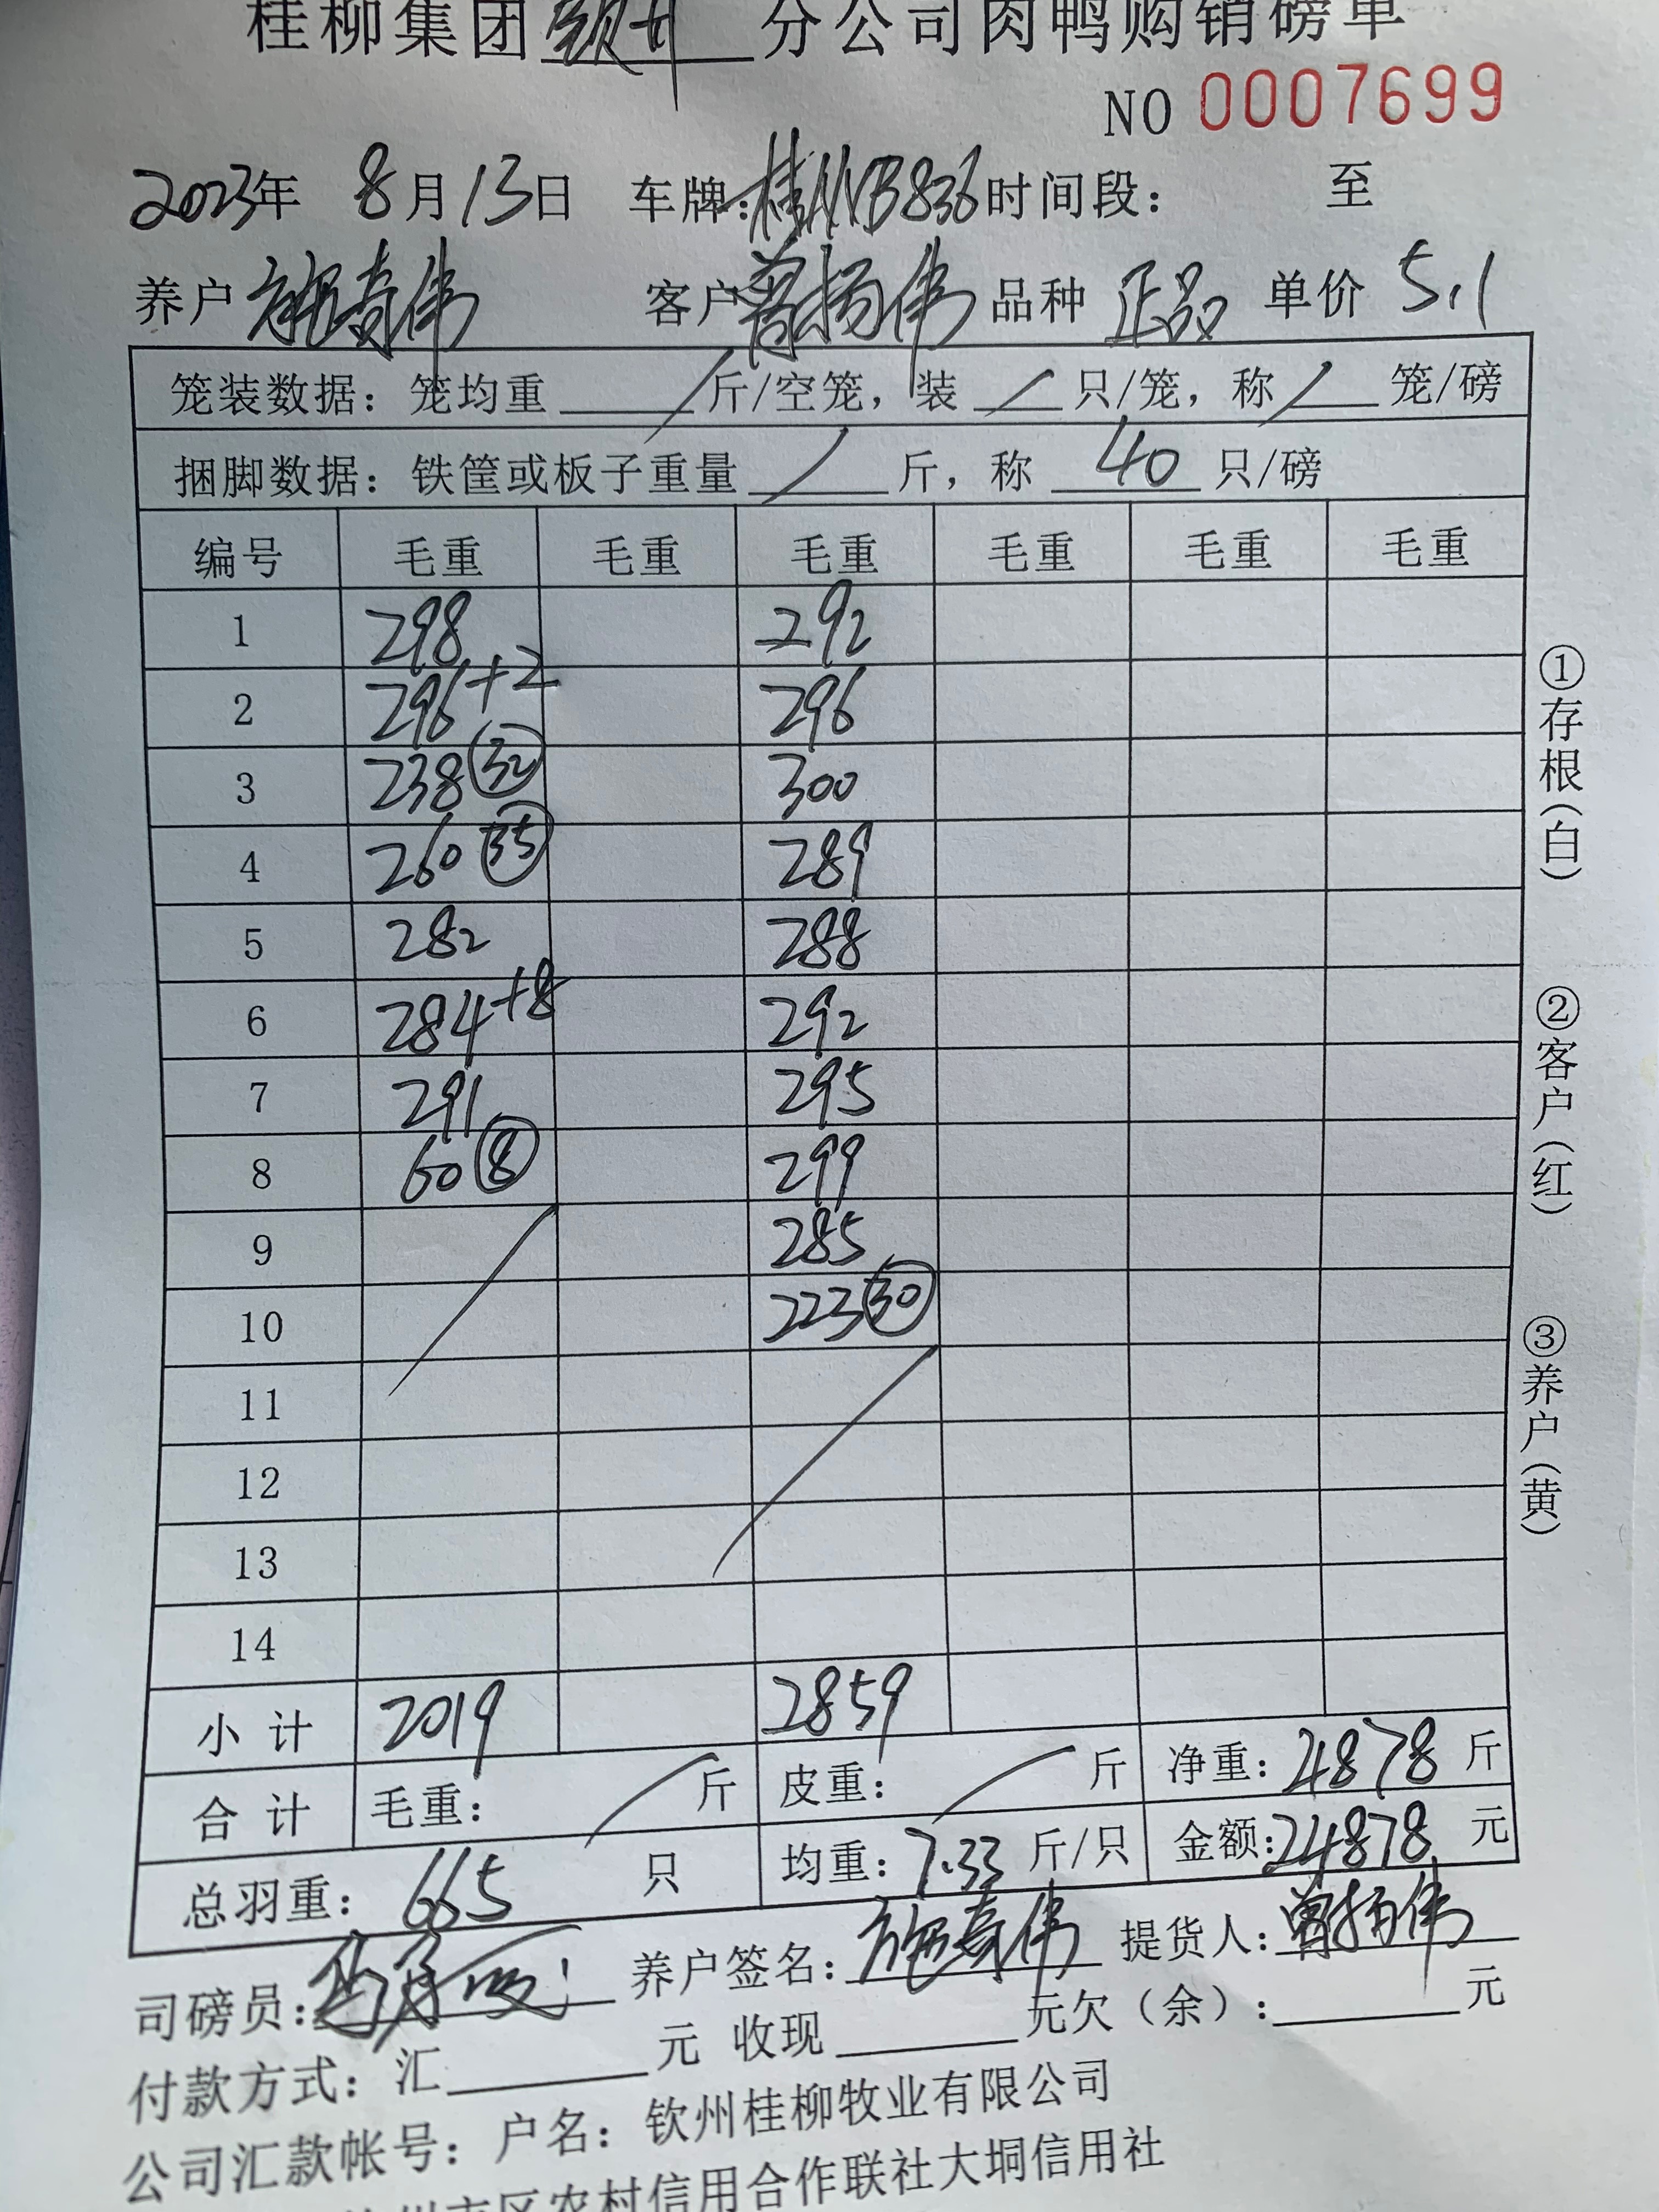 桂柳集团 分公司肉鸭购销磅单
NO 0007699
2023年 8月13日 车牌: 836时间段: 至
养户 施奇伟 客户 曾扬伟 品种 正品 单价 5.1
笼装数据: 笼均重 斤/空笼, 装 只/笼, 称 笼/磅
捆脚数据: 铁筐或板子重量 斤, 称 40 只/磅
编号 毛重 毛重 毛重 毛重 毛重 毛重
1 298 292
2 296+2 296
3 238 32 300
4 260 35 289
5 282 288
6 284+8 292
7 291 295
8 60 8 299
9 285
10 223 30
11
12
13
14
小计 2019 2859
合计 毛重: 斤 皮重: 斤 净重: 4878 斤
总羽重: 665 只 均重: 7.33 斤/只 金额: 24878 元
司磅员: 养户签名: 施奇伟 提货人: 曾扬伟
付款方式: 汇 元 收现 元欠（余）: 元
公司汇款帐号: 户名: 钦州桂柳牧业有限公司
州市区农村信用合作联社大垌信用社
①存根(白)
②客户(红)
③养户(黄)